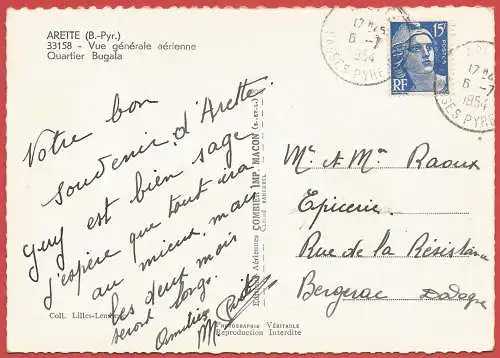 ARETTE (B.-Pyr.)
33158 - Vue générale aérienne
Quartier Bugala
Votre bon
souvenir d'Arette.
Guy est bien sage
j'espère que tout ira
au mieux, mais
les deux mois
seront longs.
Amitiés
Coll. Lilles-Lem
Aériennes COMBIER IMP. MACON (S.-et-L.)
PHOTOGRAPHIE VÉRITABLE
Reproduction Interdite
17 H45
6 -7
1954
BASSES PYRE
15F
POSTES
RF
17 H45
6 -7
1954
SES PYRE
Mr & Mme Raoux
Epicerie.
Rue de la Résistance
Bergerac Dodogne